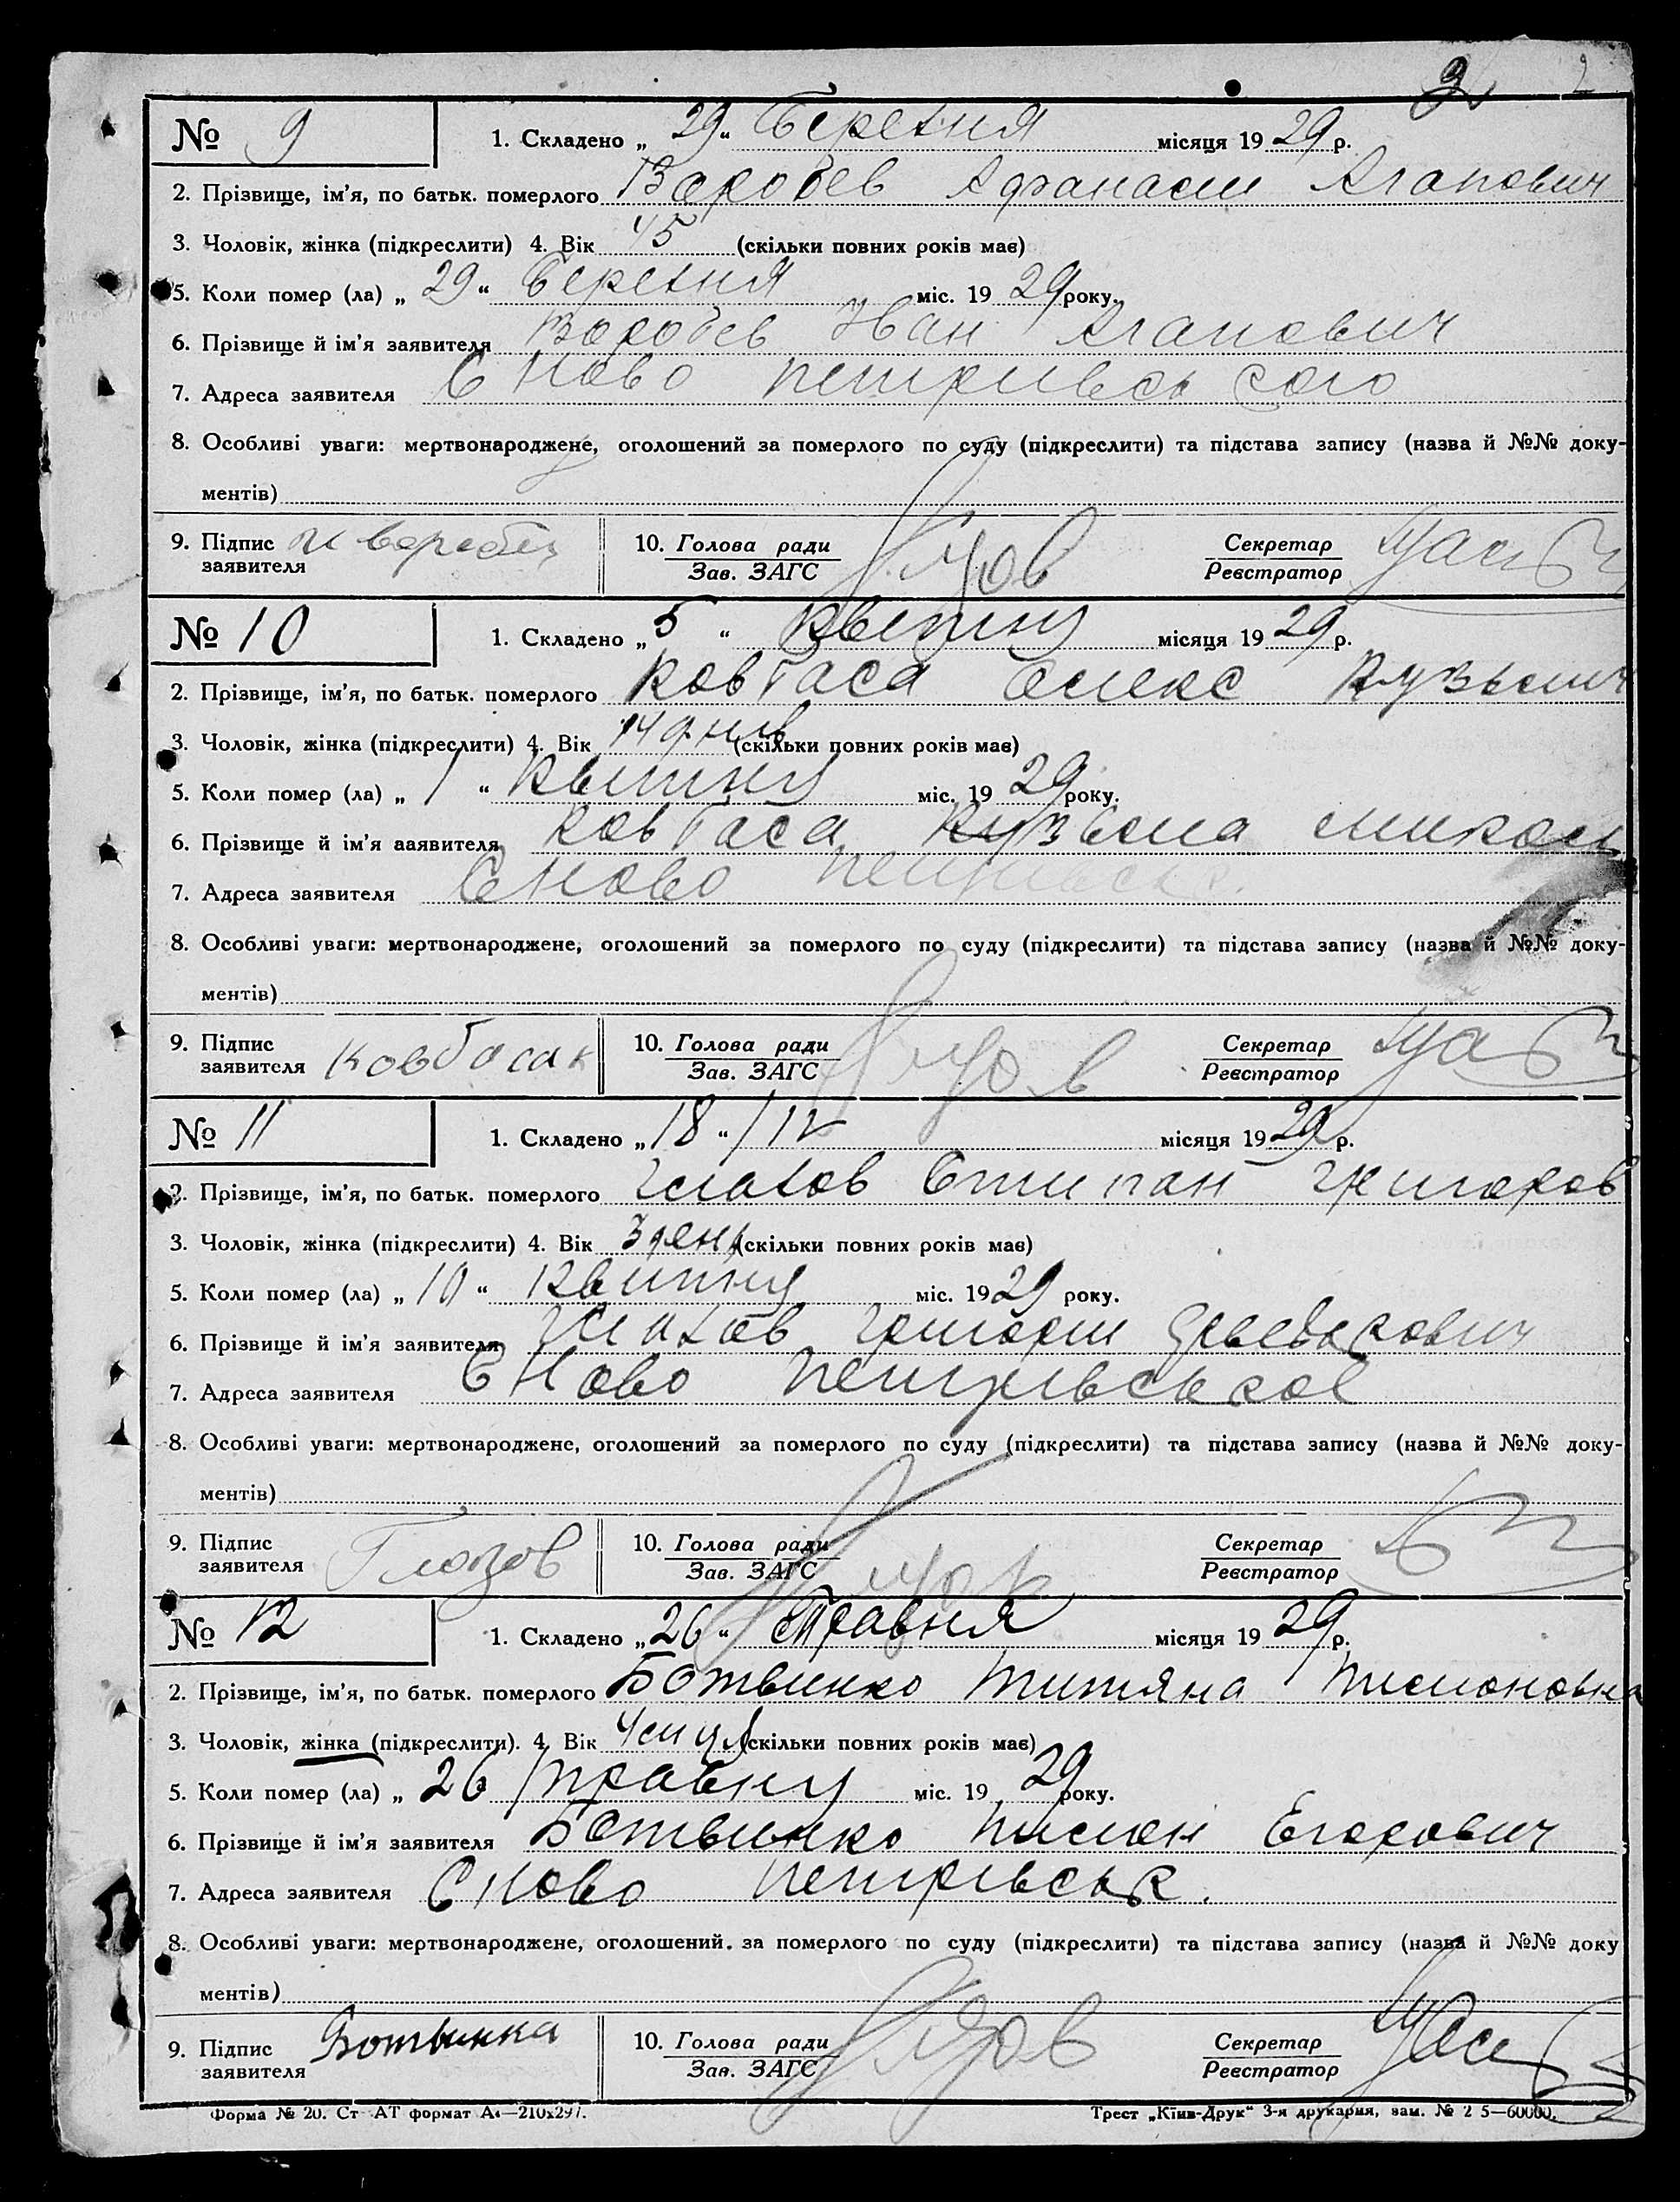 2
№ 9 1. Складено „ 29 “ Березня місяця 19 29 р.
2. Прізвище, ім’я, по батьк. померлого Воробев Афанасии Агапович
3. Чоловік, жінка (підкреслити) 4. Вік 45 (скільки повних років має)
5. Коли помер (ла) „ 29 “ Березня міс. 19 29 року.
6. Прізвище й ім’я заявителя Воробев Иван Агапович
7. Адреса заявителя С Ново Петривсь кого
8. Особливі уваги: мертвонароджене, оголошений за померлого по суду (підкреслити) та підстава запису (назва й №№ доку-
ментів)
9. Підпис заявителя 10. Голова ради Секретар
Зав. ЗАГС Реєстратор
№ 10 1. Складено „ 5 “ Квитну місяця 19 29 р.
2. Прізвище, ім’я, по батьк. померлого Ковбаса Олекс Кузьмич
3. Чоловік, жінка (підкреслити) 4. Вік 14 днив (скільки повних років має)
5. Коли помер (ла) „ 1 “ Квитну міс. 19 29 року.
6. Прізвище й ім’я заявителя Ковбаса Кузьма
7. Адреса заявителя С Ново Петривськ.
8. Особливі уваги: мертвонароджене, оголошений за померлого по суду (підкреслити) та підстава запису (назва й №№ доку-
ментів)
9. Підпис заявителя Ковбасак 10. Голова ради Секретар
Зав. ЗАГС Реєстратор
№ 11 1. Складено „ 18 “ місяця 19 29 р.
2. Прізвище, ім’я, по батьк. померлого Глазов Стипан Григоров
3. Чоловік, жінка (підкреслити) 4. Вік 3 день (скільки повних років має)
5. Коли помер (ла) „ 10 “ Квитну міс. 19 29 року.
6. Прізвище й ім’я заявителя Глазов Григории
7. Адреса заявителя С Ново Петривськое
8. Особливі уваги: мертвонароджене, оголошений за померлого по суду (підкреслити) та підстава запису (назва й №№ доку-
ментів)
9. Підпис заявителя Глозов 10. Голова ради Секретар
Зав. ЗАГС Реєстратор
№ 12 1. Складено „ 26 “ Травня місяця 19 29 р.
2. Прізвище, ім’я, по батьк. померлого Ботвинко Титяна Пимоновна
3. Чоловік, жінка (підкреслити). 4. Вік (скільки повних років має)
5. Коли помер (ла) „ 26 травну міс. 19 29 року.
6. Прізвище й ім’я заявителя Ботвинко Пимон Егорович
7. Адреса заявителя С Ново Петривськ.
8. Особливі уваги: мертвонароджене, оголошений. за померлого по суду (підкреслити) та підстава запису (назва й №№ доку
ментів)
9. Підпис заявителя Ботвинка 10. Голова ради Секретар
Зав. ЗАГС Реєстратор
Форма № 20. Ст АТ формат А4—210х297. Трест „Київ-Друк“ 3-я друкарня, зам. № 2 5—60000.